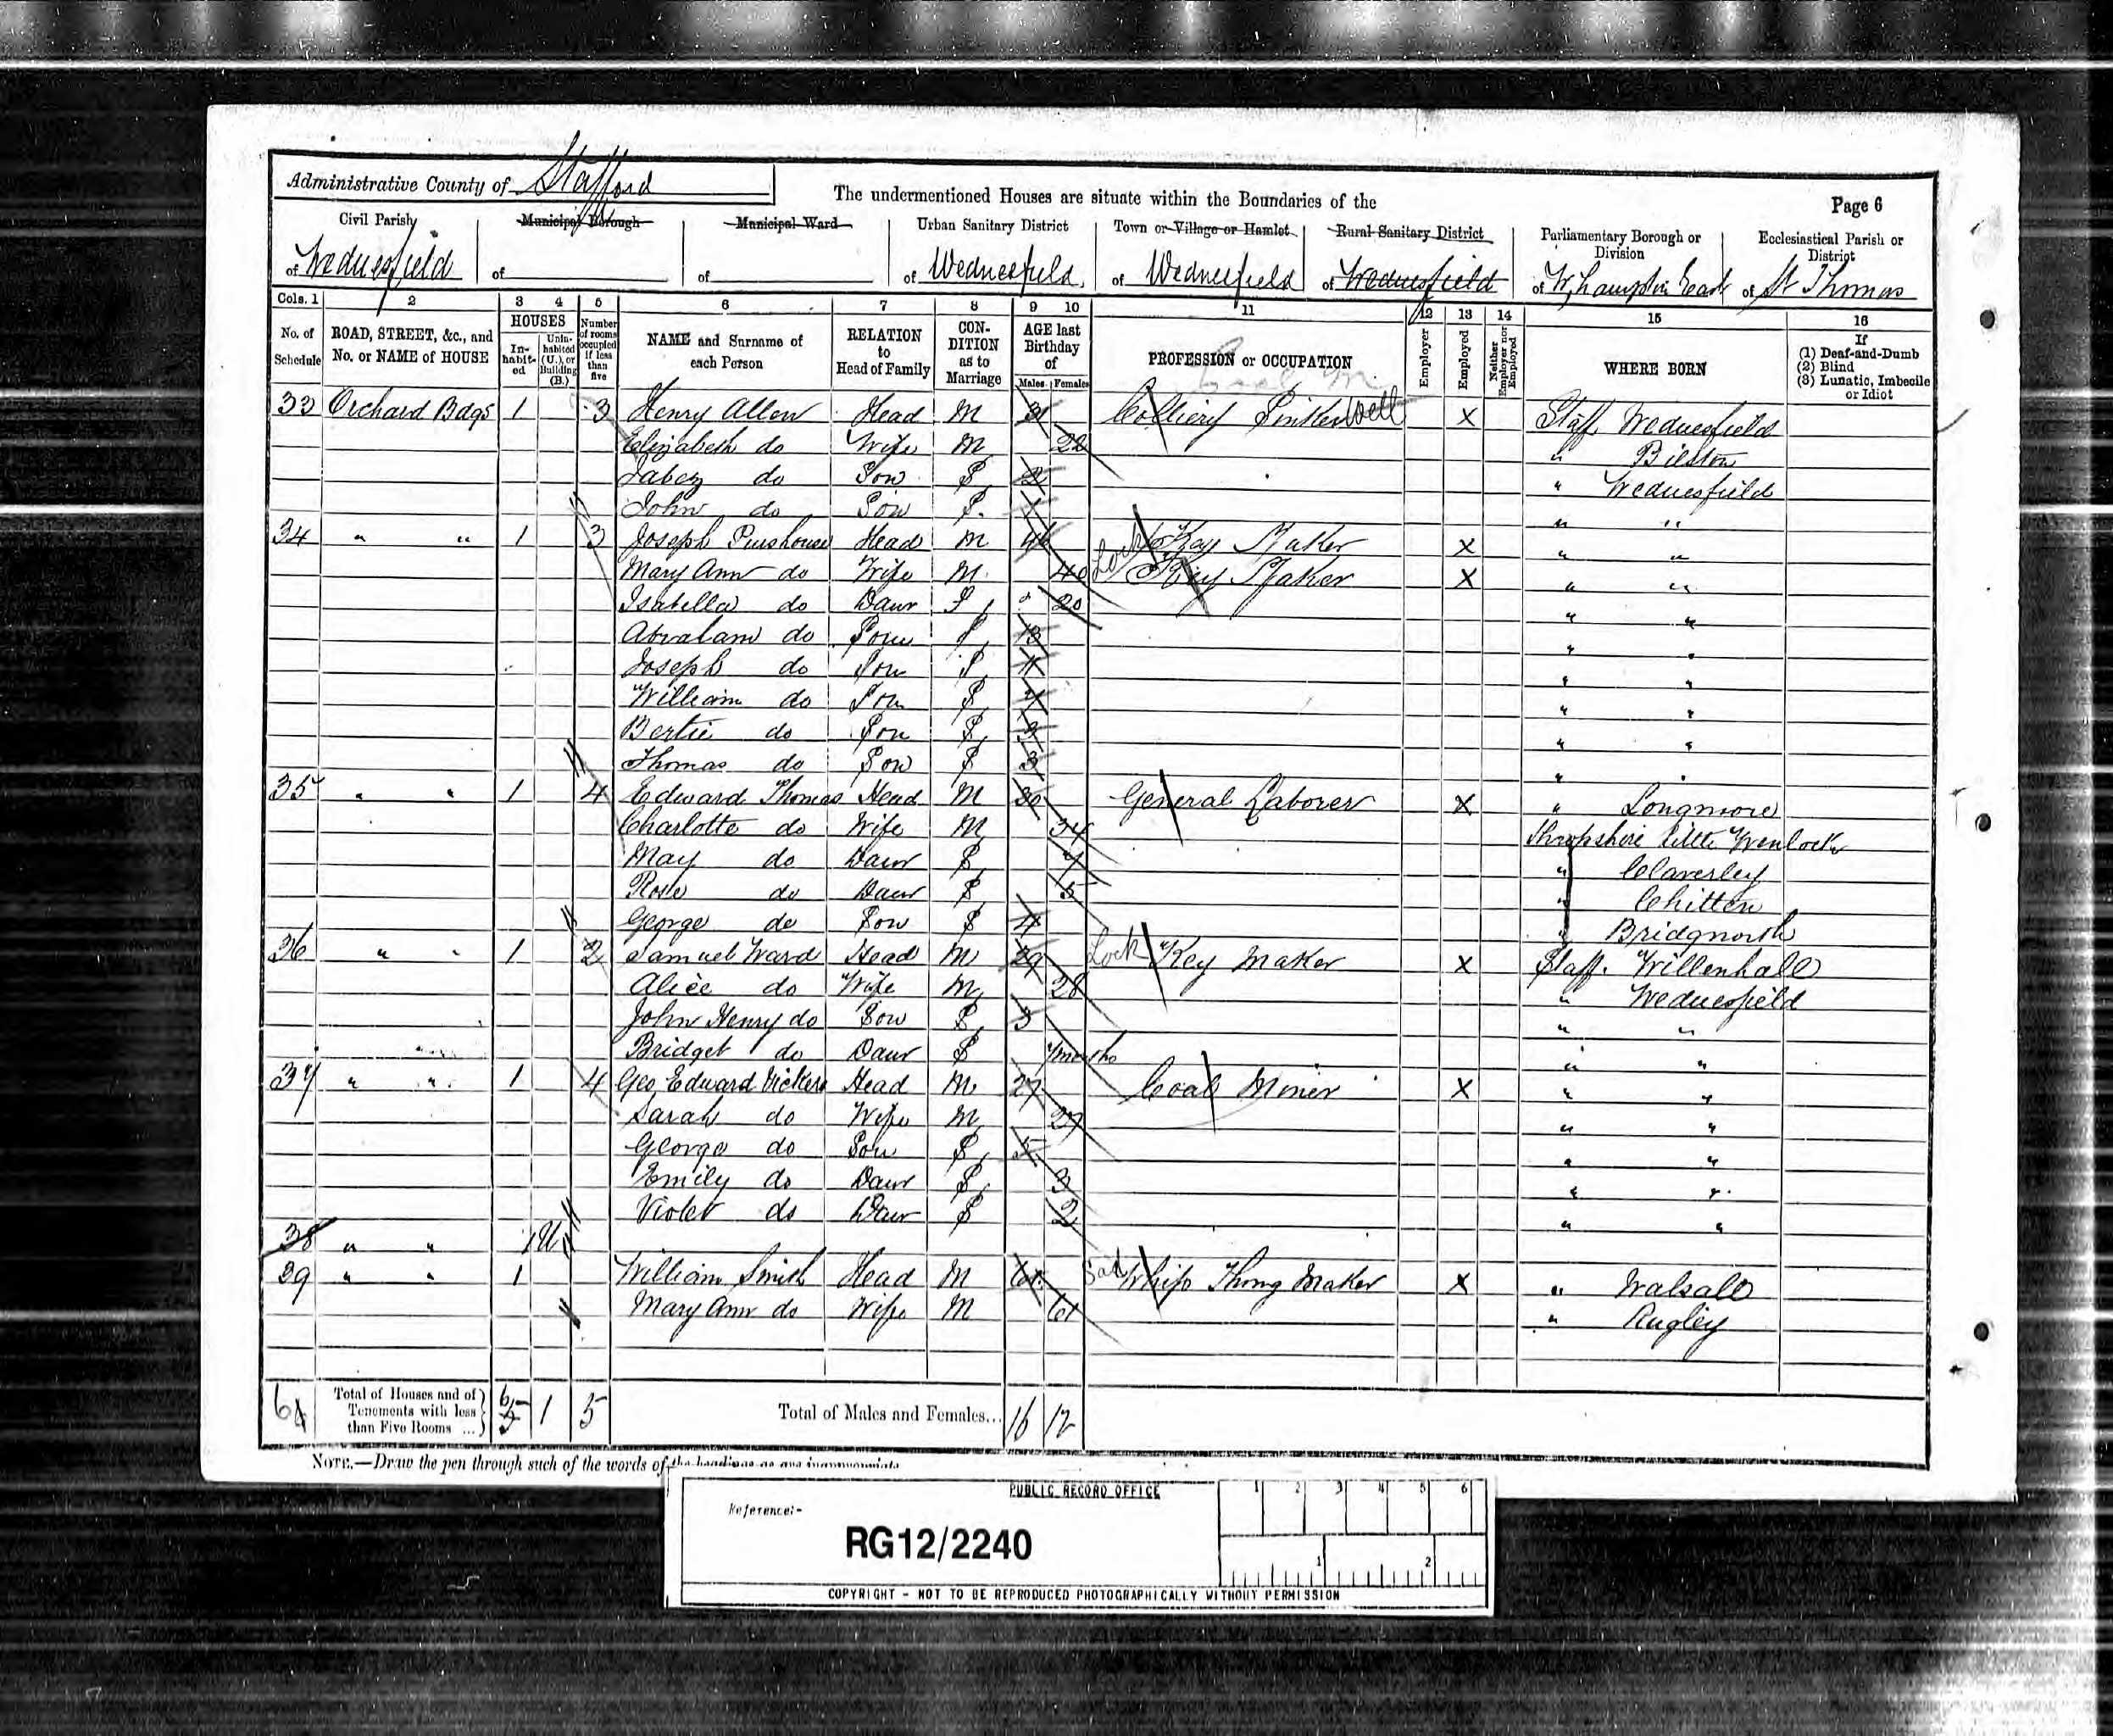 Administrative County of Stafford
The undermentioned Houses are situate within the Boundaries of the
Page 6
Civil Parish of Wednesfield
Municipal Borough of
Municipal Ward of
Urban Sanitary District of Wednesfield
Town or Village or Hamlet of Wednesfield
Rural Sanitary District of Wednesfield
Parliamentary Borough or Division of W,hampton East
Ecclesiastical Parish or District of St Thomas
Cols. 1 2 3 4 5 6 7 8 9 10 11 12 13 14 15 16
No. of Schedule
ROAD, STREET, &c., and No. or NAME of HOUSE
HOUSES
In-habit-ed
Unin-habited (U.), or Building (B.)
Number of rooms occupied if less than five
NAME and Surname of each Person
RELATION to Head of Family
CON-DITION as to Marriage
AGE last Birthday of
Males Females
PROFESSION or OCCUPATION
Employer
Employed
Neither Employer nor Employed
WHERE BORN
If (1) Deaf-and-Dumb (2) Blind (3) Lunatic, Imbecile or Idiot
33 Orchard Bdgs 1 3 Henry Allen Head M 31 Colliery Sinker Well X Staff Wednesfield
Elizabeth do Wife M 22 " Bilston
Jabez do Son S 2 " Wednesfield
John do Son S. 1 " "
34 " " 1 3 Joseph Purshouse Head M 46 Lock Key Maker X " "
Mary Ann do Wife M 40 Key Maker X " "
Isabella do Daur S 20 " "
Abraham do Son S 13 " "
Joseph do Son S 11 " "
William do Son S 7 " "
Bertie do Son S 3 " "
Thomas do Son S 3 " "
35 " " 1 4 Edward Thomas Head M 30 General Laborer X " Longmore
Charlotte do Wife M 34 Shropshire Little Wenlock
May do Daur S 7 " Claverley
Rose do Daur S 5 "
George do Son S 4 " Bridgnorth
36 " " 1 2 Samuel Ward Head M 29 Lock Key Maker X Staff. Willenhall
Alice do Wife M 28 " Wednesfield
John Henry do Son S 3 " "
Bridget do Daur S 7 months " "
37 " " 1 4 Geo Edward Vickers Head M 27 Coal Miner X " "
Sarah do Wife M 27 " "
George do Son S 5 " "
Emily do Daur S 3 " "
Violet do Daur S 2 " "
38 " " 1 U
39 " " 1 William Smith Head M 61 Whip Thong Maker X " Walsall
Mary Ann do Wife M 61 " Rugley
6 Total of Houses and of Tenements with less than Five Rooms ... 6 5 1 5 Total of Males and Females... 16 12
NOTE.—Draw the pen through such of the words of the headings as are inappropriate.
PUBLIC RECORD OFFICE
1 2 3 4 5 6
Reference:-
RG12/2240
1 2
COPYRIGHT - NOT TO BE REPRODUCED PHOTOGRAPHICALLY WITHOUT PERMISSION